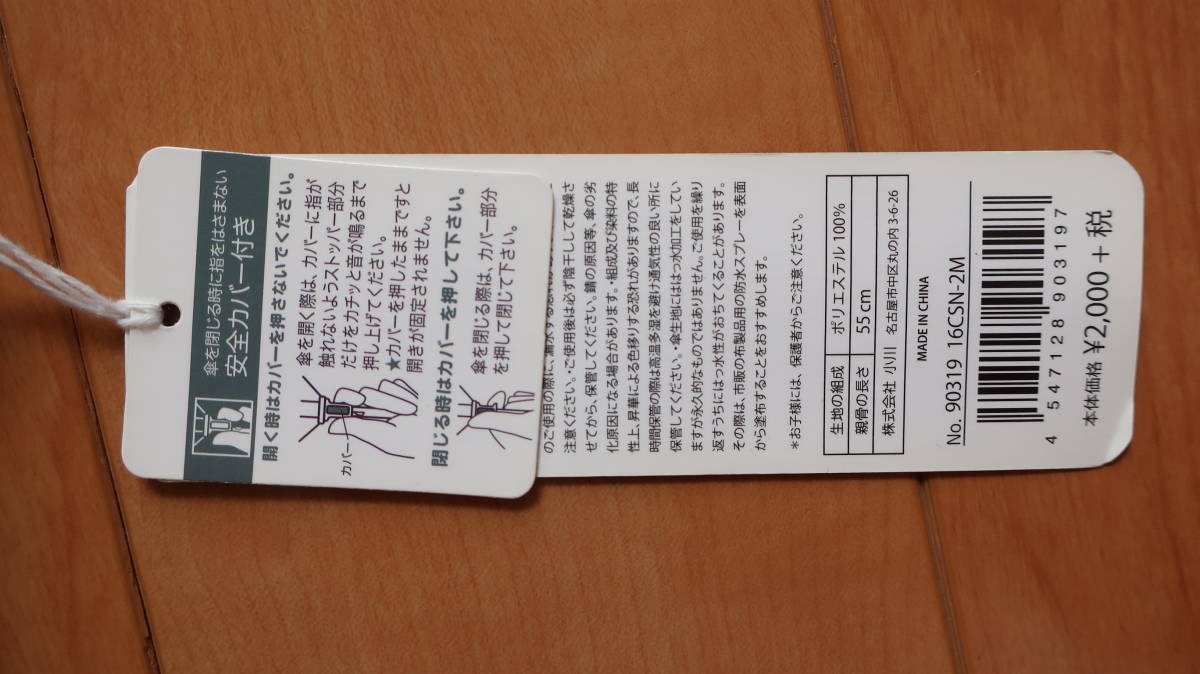 傘を閉じる時に指をはさまない
安全カバー付き
開く時はカバーを押さないでください。
傘を開く際は、カバーに指が
触れないようストッパー部分
だけをカチッと音が鳴るまで
押し上げてください。
★カバーを押したままですと
開きが固定されません。
カバー
閉じる時はカバーを押して下さい。
傘を閉じる際は、カバー部分
を押して閉じて下さい。
のご使用の際に、漏水する恐れが
注意ください。・ご使用後は必ず陰干しして乾燥さ
せてから、保管してください。錆の原因等、傘の劣
化原因になる場合があります。・組成及び染料の特
性上、昇華による色移りする恐れがありますので、長
時間保管の際は高温多湿を避け通気性の良い所に
保管してください。・傘生地にははっ水加工をしてい
ますが永久的なものではありません。ご使用を繰り
返すうちにはっ水性がおちてくることがあります。
その際は、市販の布製品用の防水スプレーを表面
から塗布することをおすすめします。
*お子様には、保護者からご注意ください。
生地の組成 ポリエステル 100%
親骨の長さ 55 cm
株式会社 小川 名古屋市中区丸の内 3-6-26
MADE IN CHINA
No. 90319 16CSN-2M
4 547128 903197
本体価格 ¥2,000 + 税